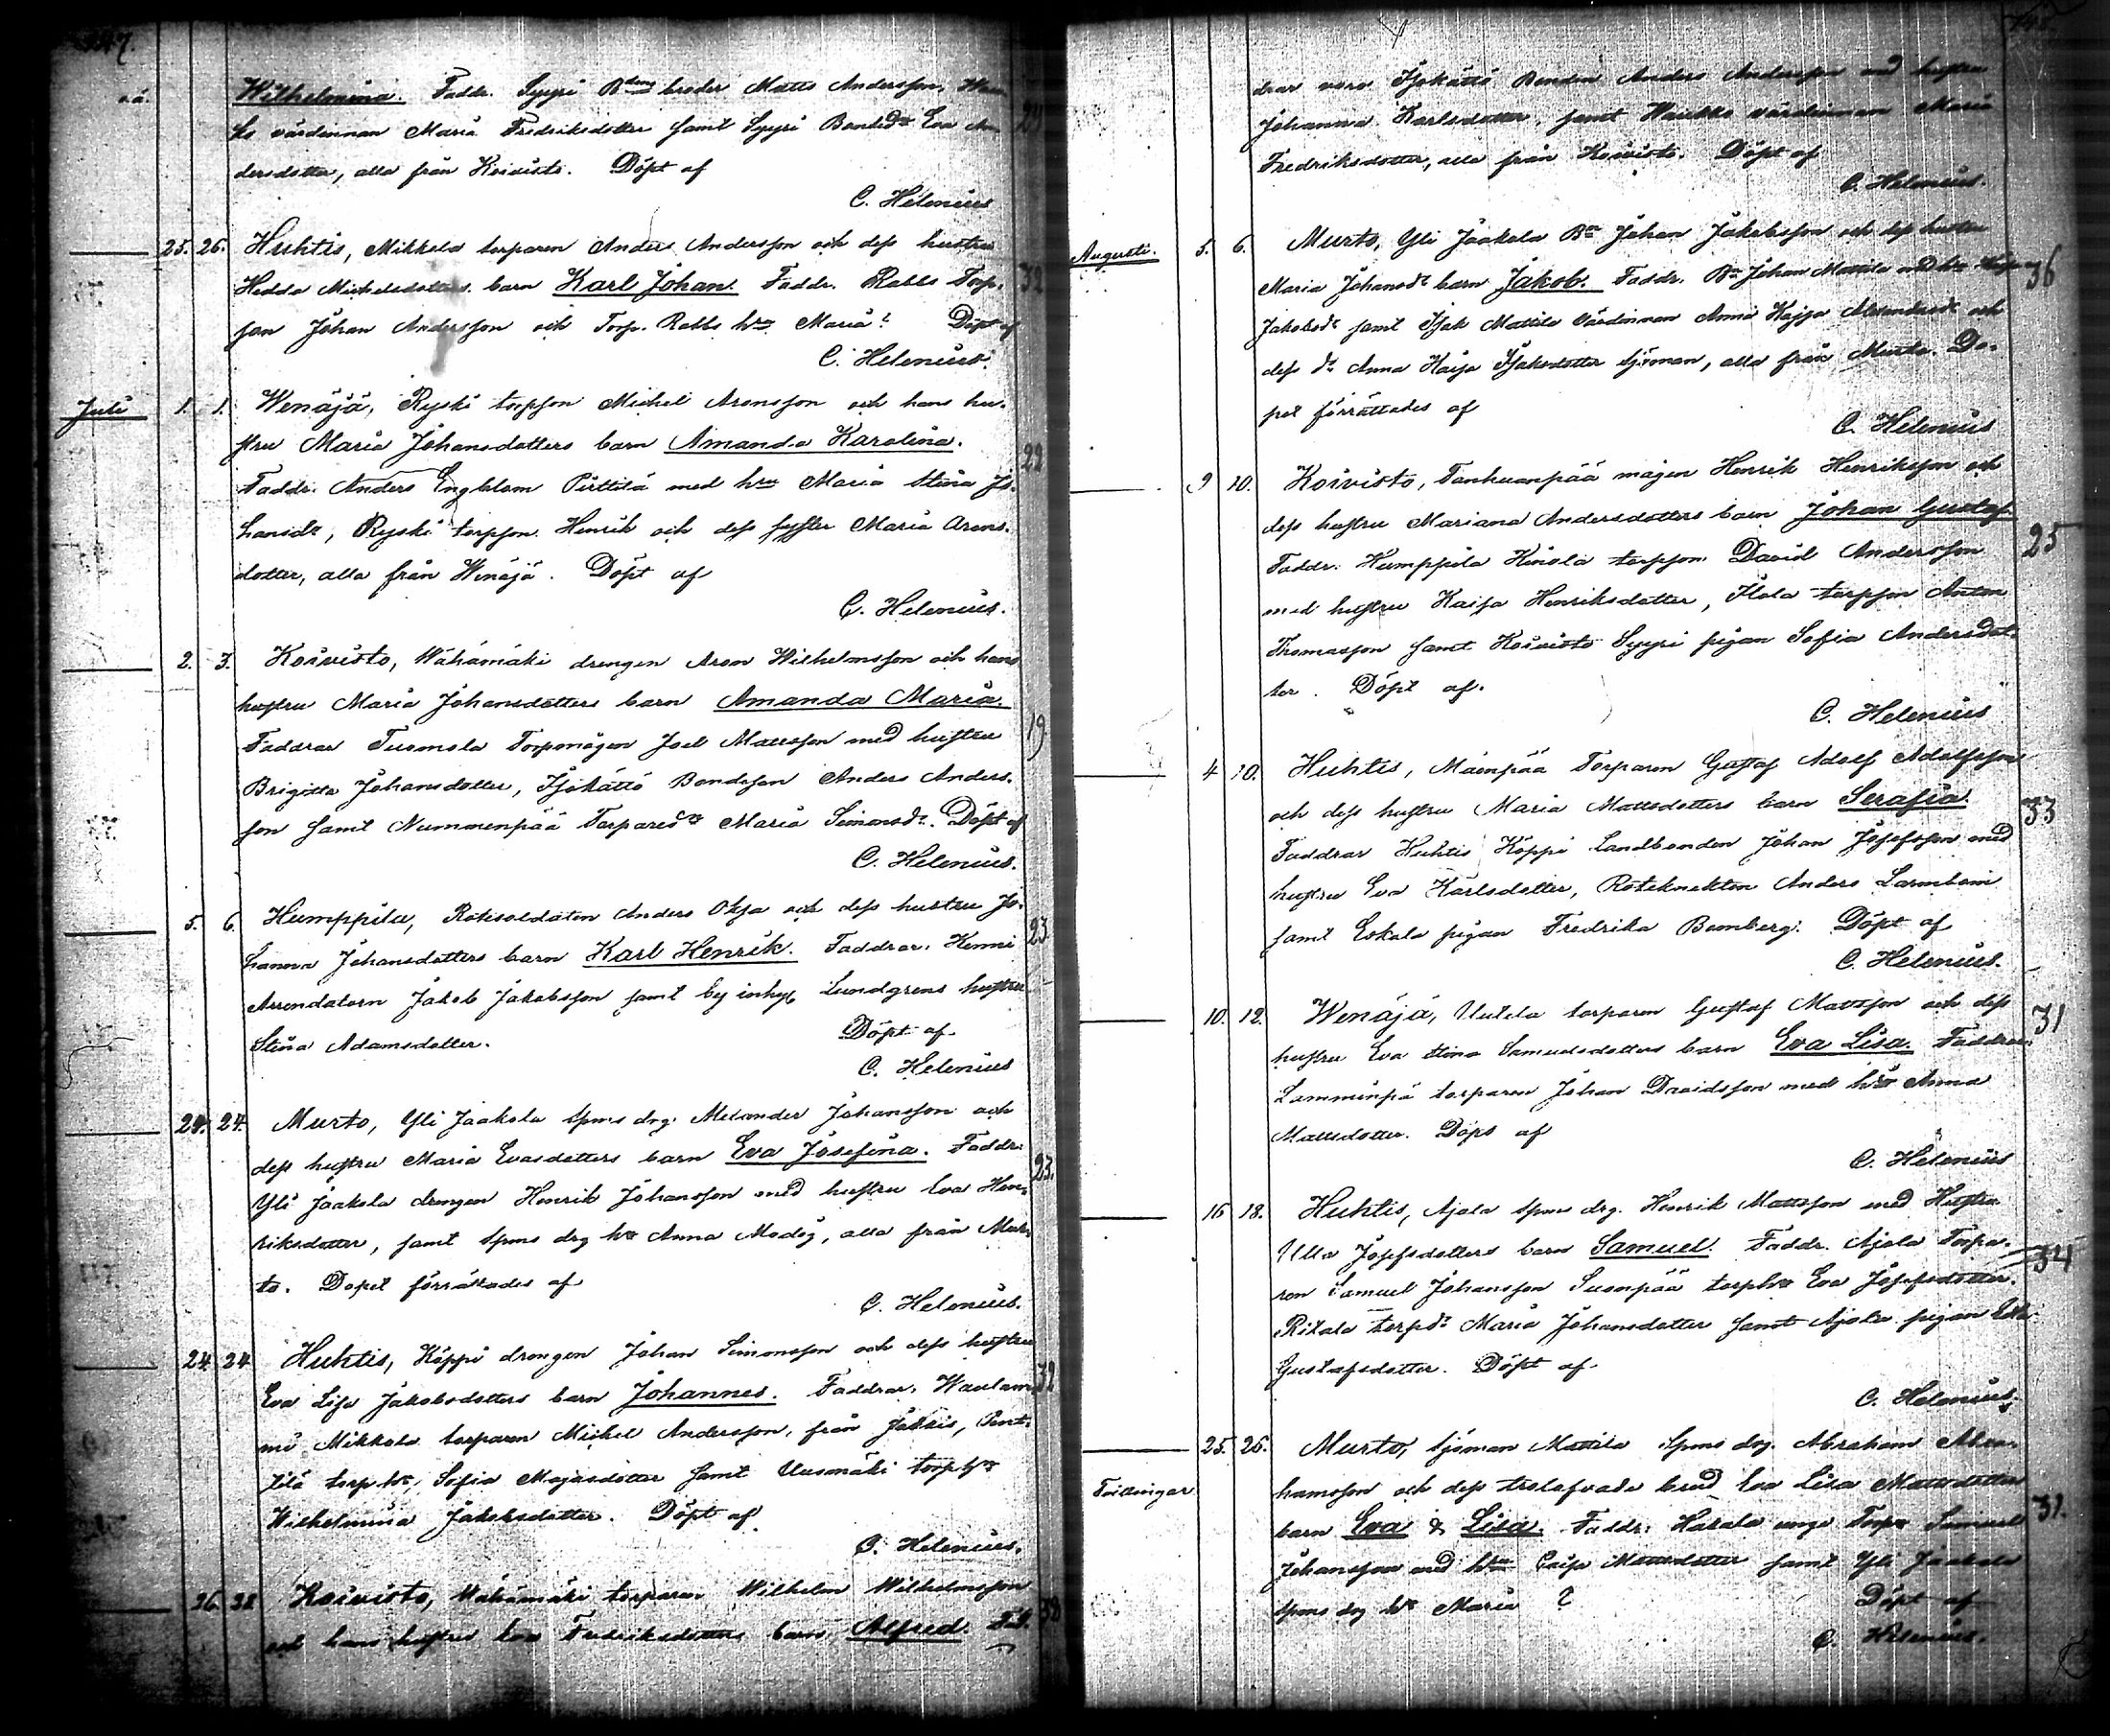 147.
Wilhelmina. Faddr. Syyri Bdens broder Matts Andersson,
ko värdinnan Maria Fredriksdotter samt Syyri Bondedr Eva An
dersdotter, alla från Koivisto. Döpt af
C. Helenius
25. 26. Huhtis, Mikkola torparen Anders Andersson och dess hustru
Hedda Michelsdotters barn Karl Johan. Faddr. Rabbs Torp. 32
son Johan Andersson och Torp. Rabbs hru Maria? Döpt af
C. Helenius.
Juli 1. 1. Wenäjä, Ryski torpson Michel Aronsson och hans hu-
stru Maria Johansdotters barn Amanda Karolina. 22
Faddr. Anders Englblom Pirttilä med hru Maria Stina Jo-
hansdr, Ryski torpson Henrik och dess syster Maria Arons-
dotter, alla från Wenäjä. Döpt af
C. Helenius.
2. 3. Koivisto, Wähämäki drengen Aron Wilhelmsson och hans
hustru Maria Johansdotters barn Amanda Maria. 19
Faddrar Tuomola Torpmågen Joel Mattsson med hustru
Brigitta Johansdotter, Isokättö Bondeson Anders Anders-
son samt Nummenpää Torparedr Maria Simonsdr. Döpt af
C. Helenius.
5. 6. Humppila, Rotesoldaten Anders Oksa och dess hustru Jo- 23
hanna Johansdotters barn Karl Henrik. Faddrar: Kenni
Arrendatorn Jakob Jakobsson samt by inhys Lundgrens hustru
Stina Adamsdotter. Döpt af
C. Helenius
24. 24. Murto, Yli Jaakola Spms drg. Alexander Johansson och
dess hustru Maria Evasdotters barn Eva Josefina. Faddr: 23.
Yli Jaakola drengen Henrik Johansson med hustru Eva Hen-
riksdotter, samt Spms drg hru Anna Modig, alla från Mur-
to. Dopet förrättades af
C. Helenius.
24 24 Huhtis, Köppi drengen Johan Simonsson och dess hustru
Eva Lisa Jakobsdotters barn Johannes. Faddrar: Waulam- 32
mi Mikkola torparen Michel Andersson, från Jokkis, Pent-
tilä torp hru, Sofia Majasdotter samt Uusmäki torp hru
Wilhelmina Jakobsdotter. Döpt af
C. Helenius.
26. 28 Koivisto, Wähämäki torparen Wilhelm Wilhelmsson
och hans hustru Eva Fredriksdotters barn Alfred. Fad- 38
drar voro Isokättö Bonden Anders Andersson med hustru
Johanna Karlsdotter, samt Haukko värdinnan Maria
Fredriksdotter, alla från Koivisto. Döpt af
C. Helenius.
Augusti. 5. 6. Murto, Yli Jaakola Bn Johan Jakobsson och dess hustru
Maria Johansdr barn Jakob. Faddr. Bn Johan Mattila med hru 36
Jakobsdr samt Isak Mattila Värdinnan Anna Kajsa Alexandersdr och
dess dr Anna Kaisa Isaksdotter Sjöman, alla från Murto. Do-
pet förrättades af
C. Helenius
9 10. Koivisto, Tanhuanpää mågen Henrik Henriksson och
dess hustru Mariana Andersdotters barn Johan Gustaf
Faddr. Humppila Kinola torpson David Andersson 25
med hustru Kaisa Henriksdotter, Ilola torpson Anton
Thomasson samt Koivisto Syyri pigan Sofia Andersdot-
ter. Döpt af.
C. Helenius
4 10. Huhtis, Mäenpää Torparen Gustaf Adolf Adolfsson
och dess hustru Maria Mattsdotters barn Serafia. 33
Faddrar Huhtis Köppi Landbonden Johan Josefsson med
hustru Eva Karlsdotter, Roteknekten Anders Larmbom
samt Eskola pigan Fredrika Bomberg. Döpt af
C. Helenius.
10. 12. Wenäjä, Uutela torparen Gustaf Mattsson och dess 31
hustru Eva Stina Samuelsdotters barn Eva Lisa. Faddrar:
Lamminpä torparen Johan Davidsson med hru Anna
Mattsdotter. Döpt af
C. Helenius
16 18. Huhtis, Ajola Spms drg. Henrik Mattsson med Hustru
Ulla Josefsdotters barn Samuel. Faddr. Ajola Torpa- 34
ren Samuel Johansson Suonpää torphru Eva Josefsdotter.
Rikala torpdr Maria Johansdotter samt Ajola pigan
Gustafsdotter. Döpt af
C. Helenius.
25. 26. Murto, Sjöman Mattila Spms drg. Abraham Abra-
Tvillingar hamsson och dess trolofvade brud Eva Lisa Mattsdotter
barn Eva & Lisa. Faddr. Harala unge Torp Samuel 31.
Johansson med hru Caisa Mattsdotter samt Yli Jaakola
Spms drg hru Maria ? Döpt af
C. Helenius.